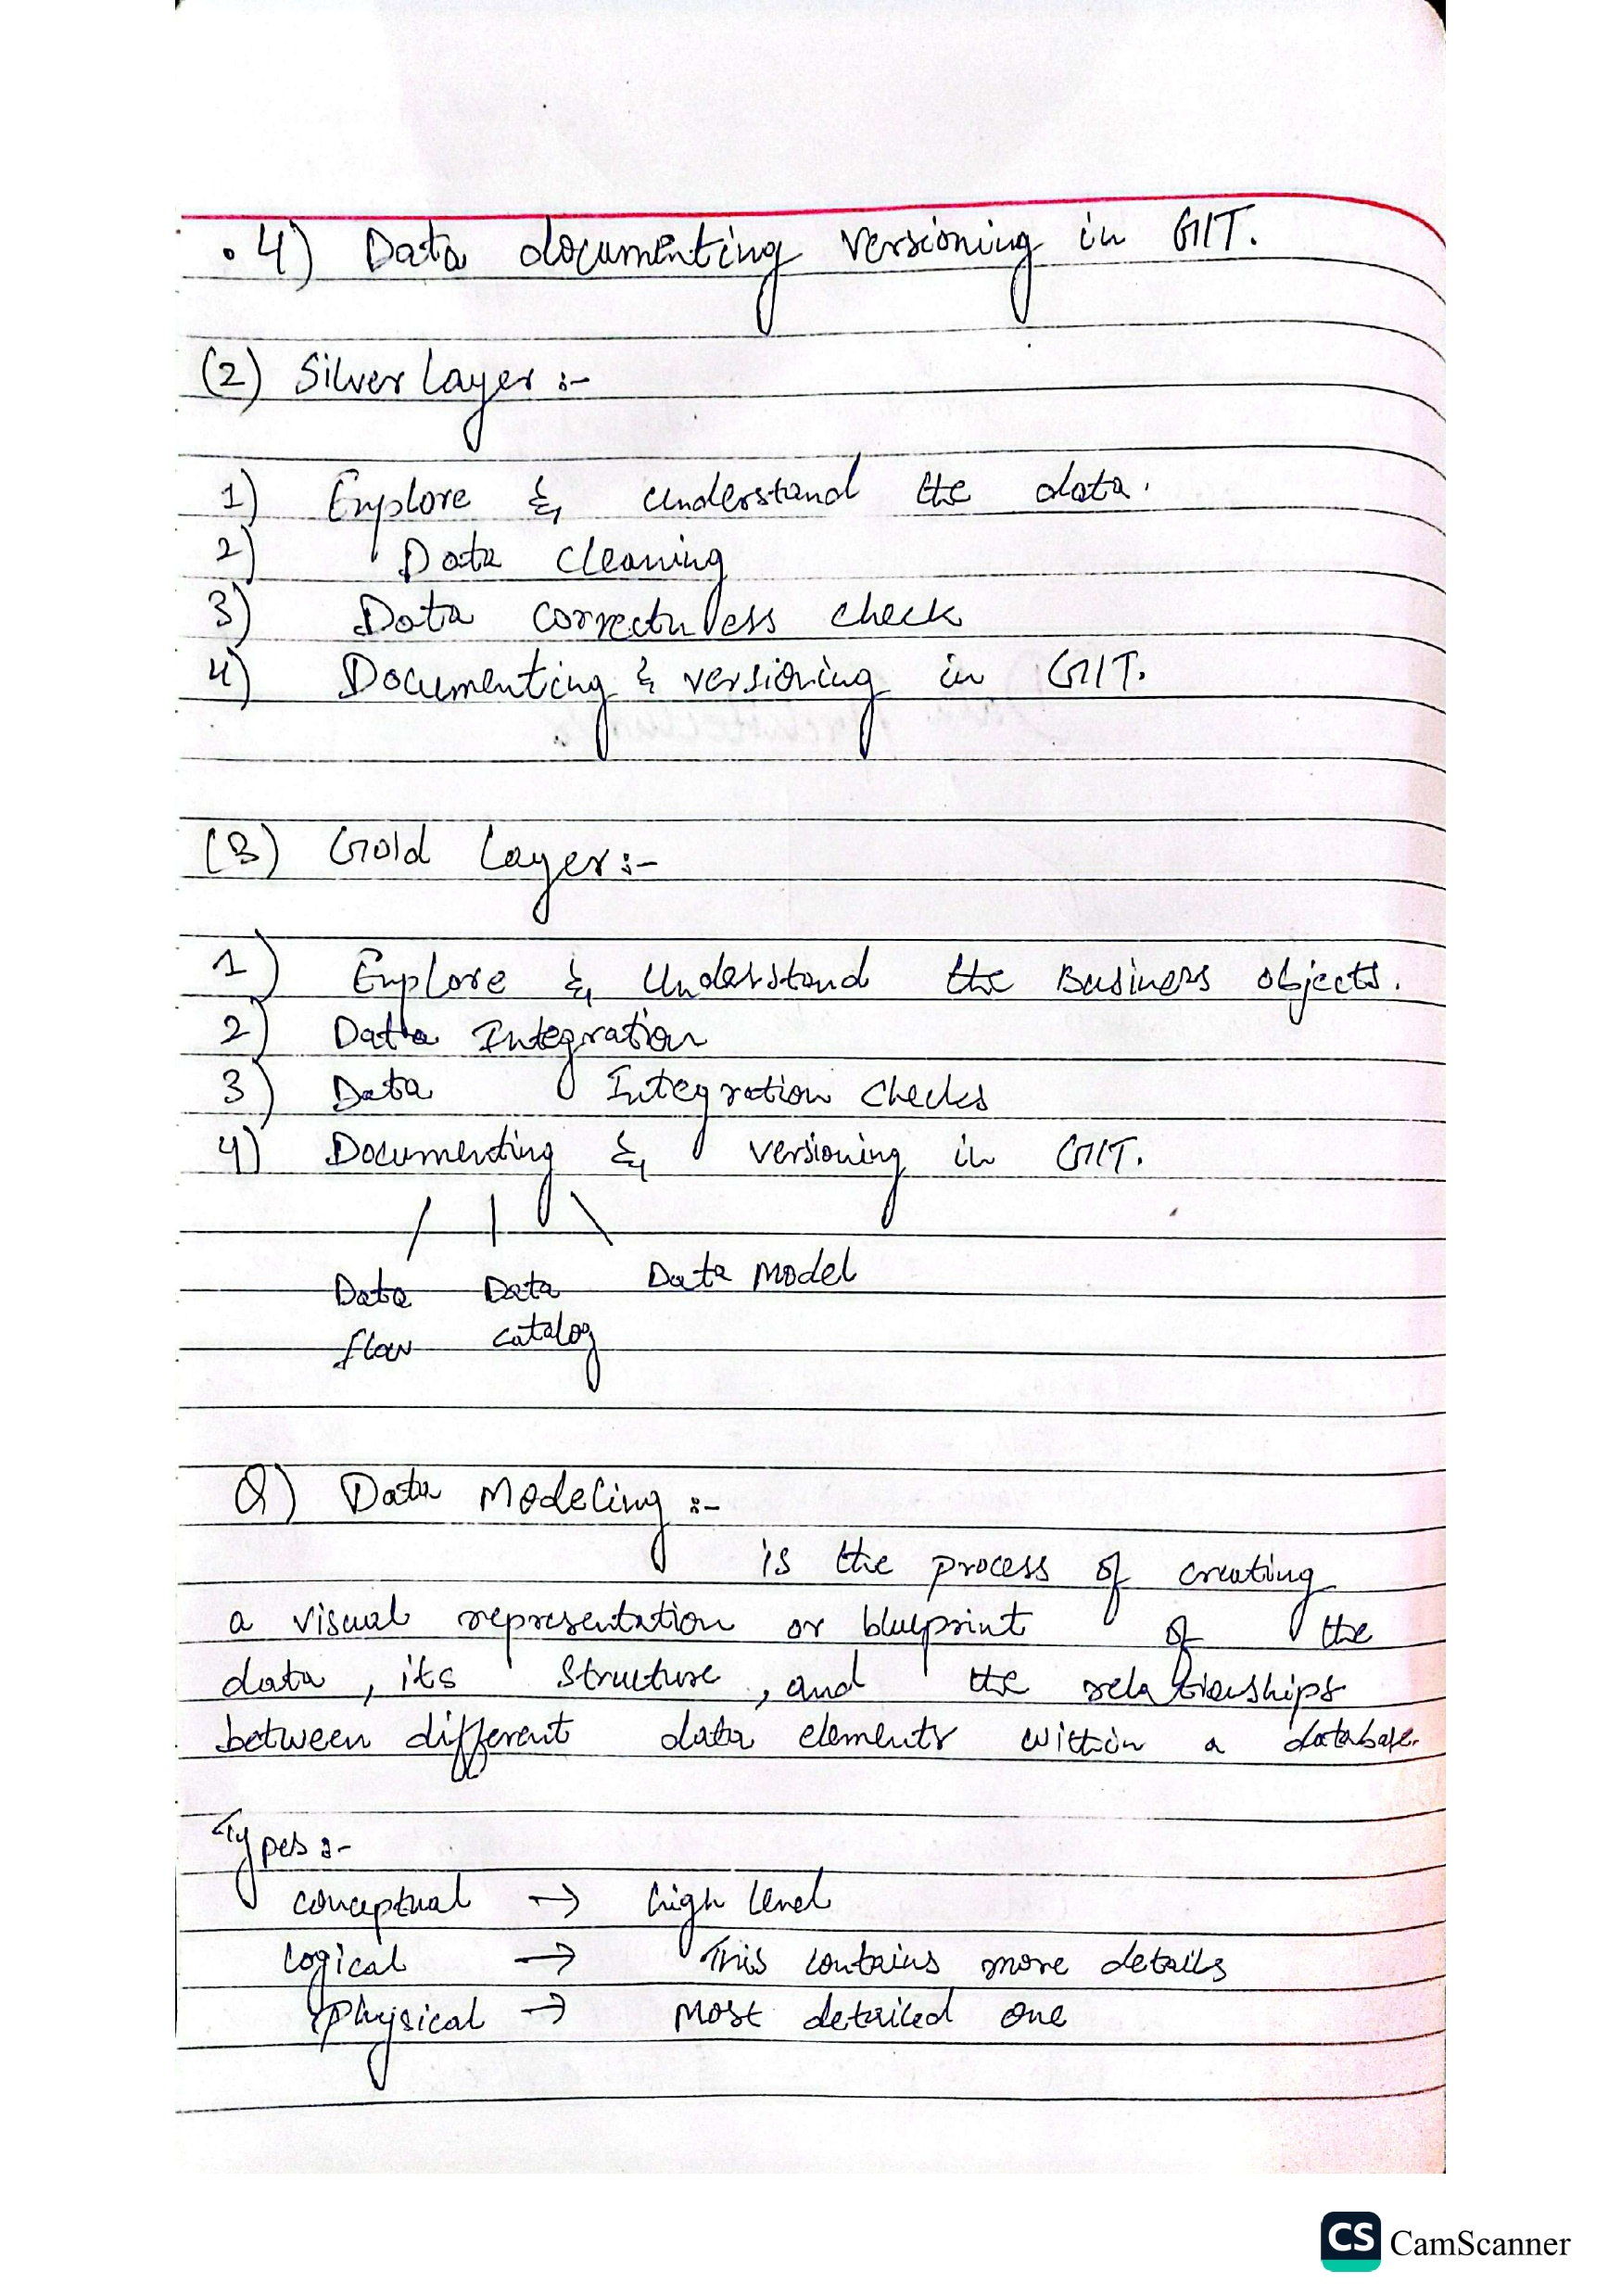 . 4) Data documenting versioning in GIT.
(2) Silver Layer :-
1) Explore & understand the data.
2) Data cleaning
3) Data correctness check
4) Documenting & versioning in GIT.
(3) Gold Layer :-
1) Explore & Understand the Business objects.
2) Data Integration
3) Data Integration Checks
4) Documenting & versioning in GIT.
Data Data Data Model
flow catalog
Q) Data Modeling :-
is the process of creating
a visual representation or blueprint of the
data, its structure, and the relationships
between different data elements within a database.
Types :-
conceptual → high level
logical → This contains more details
Physical → Most detailed one
CS CamScanner